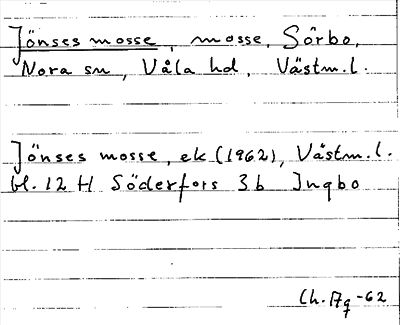 Jönses mosse, mosse, Sörbo,
Nora sn, Våla hd, Västm. l.
Jönses mosse, ek (1962), Västm. l.
bl. 12 H Söderfors 3b Ingbo
-62